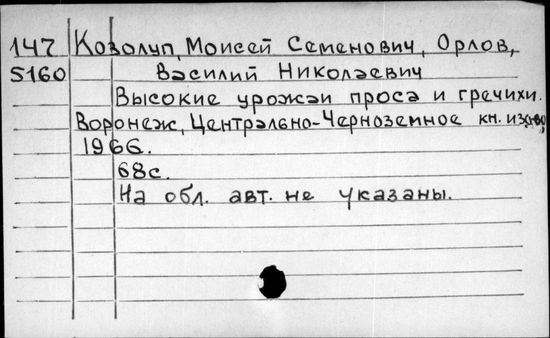 147 Козолуп, Моисей Семенович, Орлов,
5160 Василий Николаевич
Высокие урожаи проса и гречихи.
Воронеж, Центрально-Черноземное кн. изд-во,
1966.
68с.
На обл. авт. не указаны.